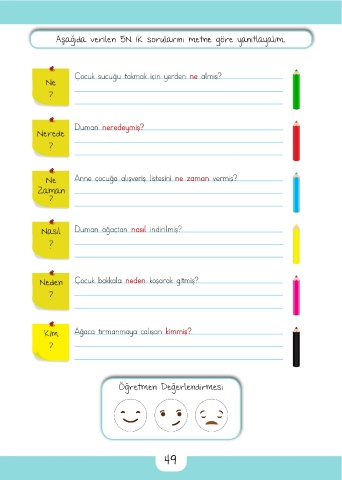 Aşağıda verilen 5N 1K sorularını metne göre yanıtlayalım.
Ne
?
Çocuk sucuğu takmak için yerden ne almış?
Nerede
?
Duman neredeymiş?
Ne
Zaman
?
Anne çocuğa alışveriş listesini ne zaman vermiş?
Nasıl
?
Duman ağaçtan nasıl indirilmiş?
Neden
?
Çocuk bakkala neden koşarak gitmiş?
Kim
?
Ağaca tırmanmaya çalışan kimmiş?
Öğretmen Değerlendirmesi
49